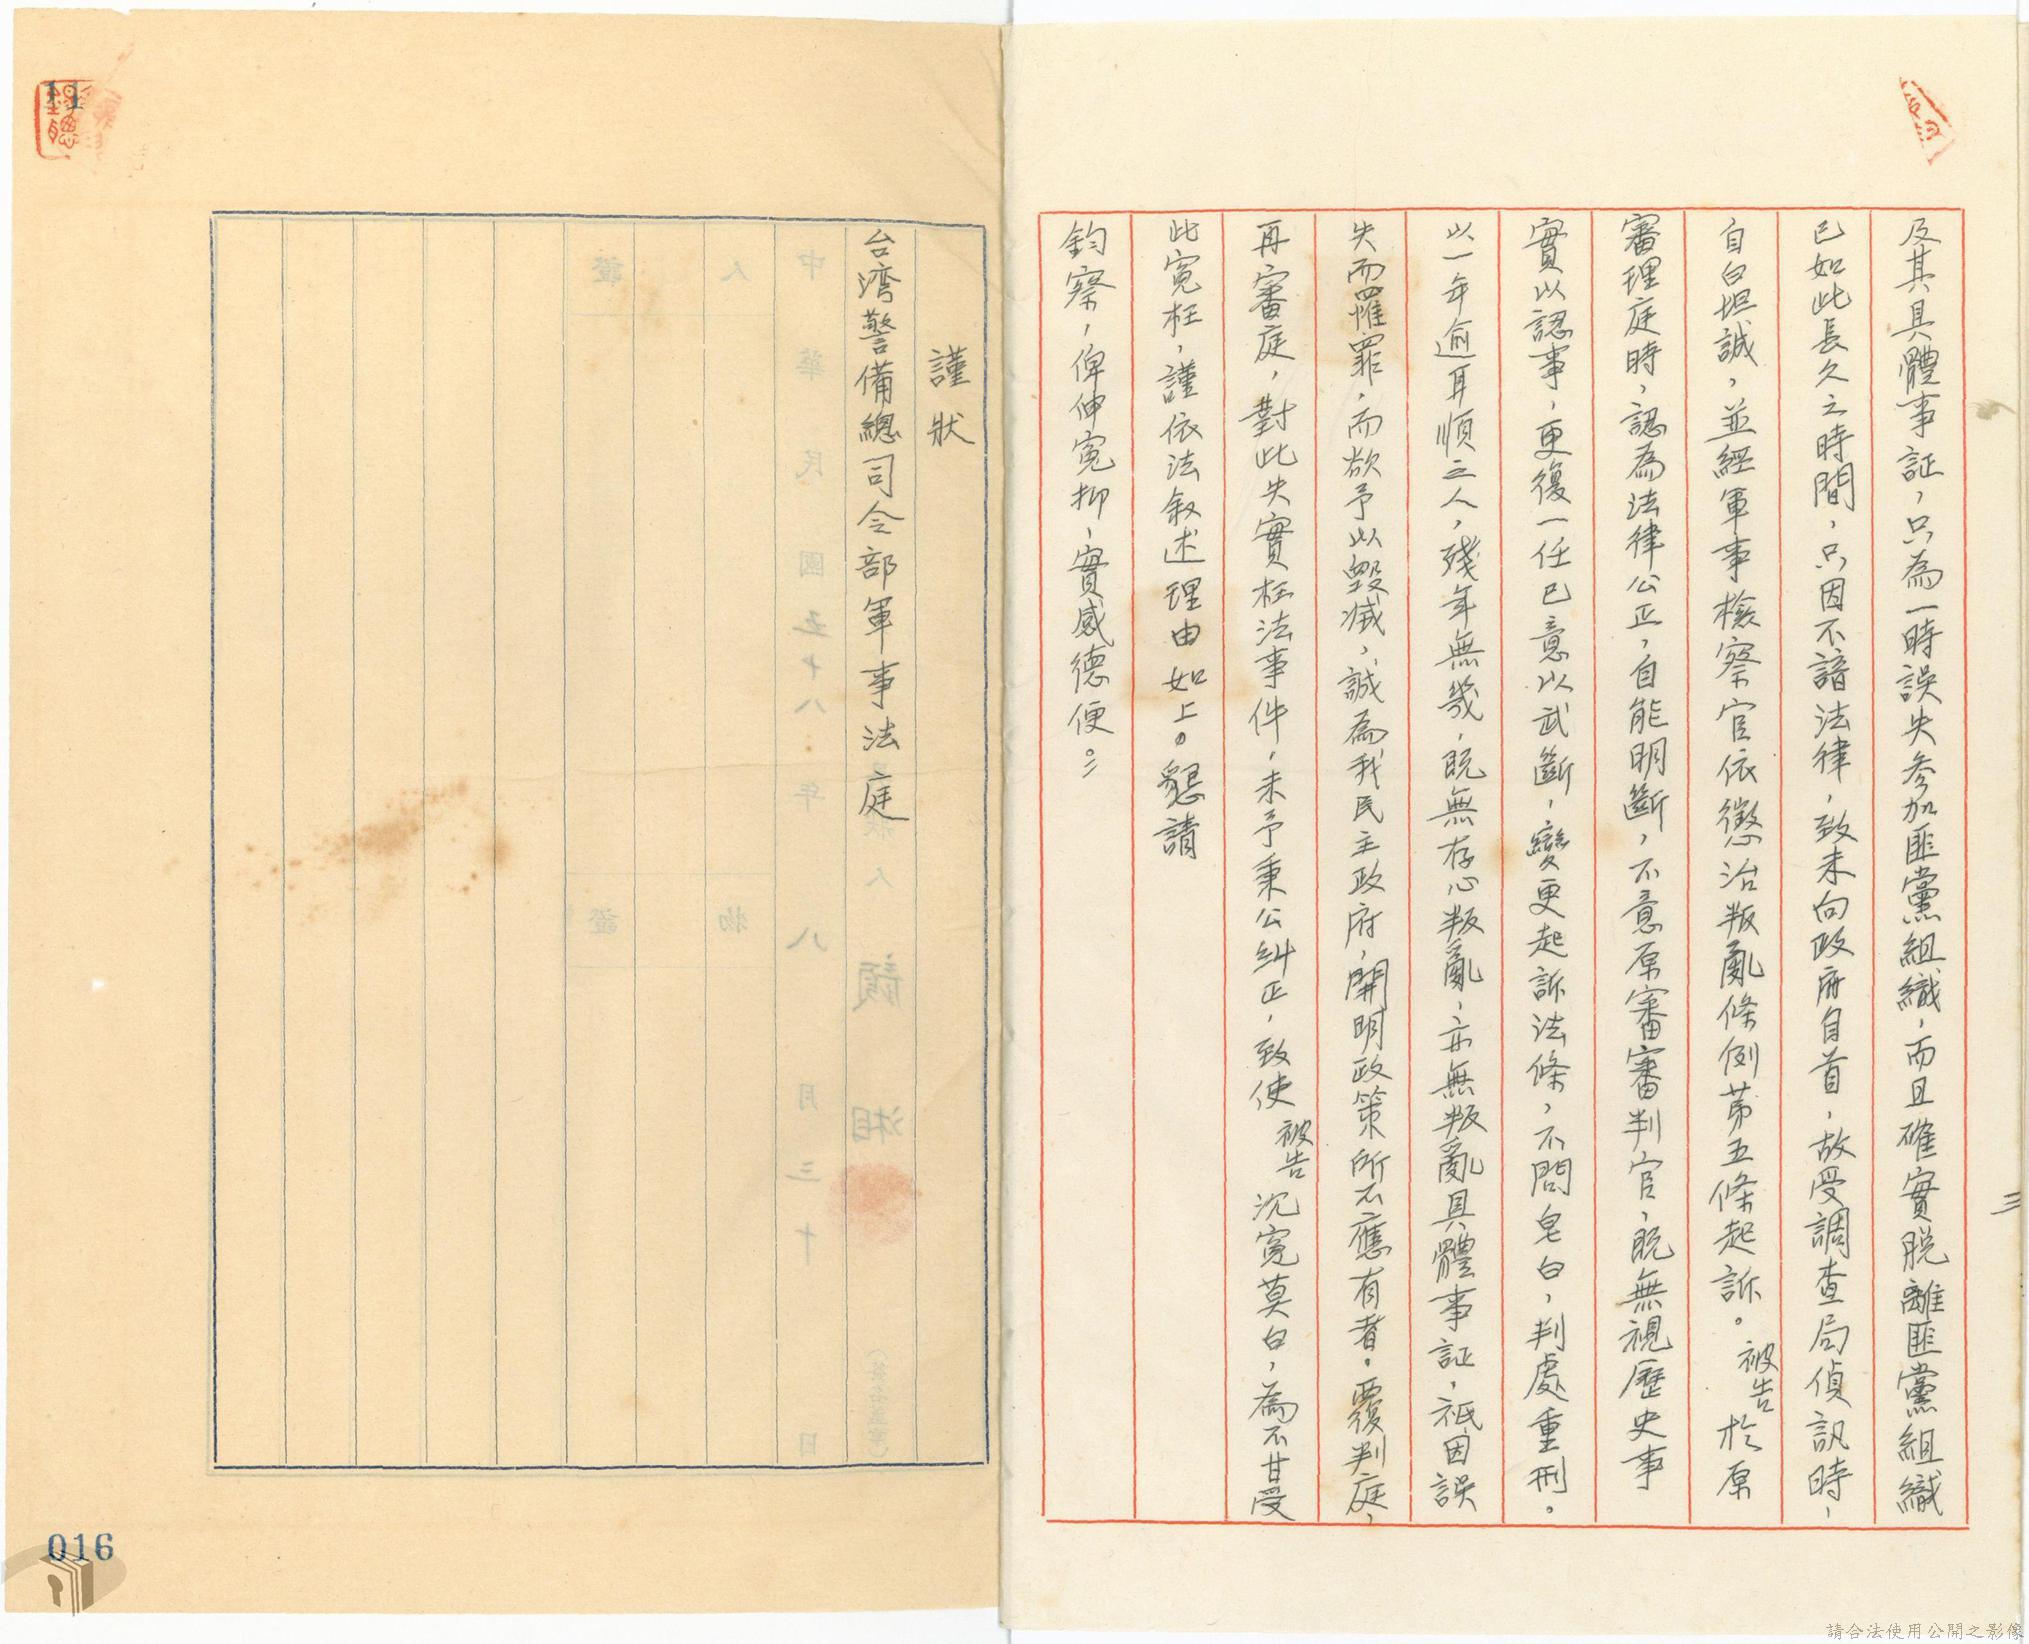 三
及其具體事証，只為一時誤失參加匪黨組織，而且確實脫離匪黨組織
已如此長久之時間，只因不諳法律，致未向政府自首，故受調查局偵訊時，
自白坦誠，並經軍事檢察官依懲治叛亂條例第五條起訴。被告於原
審理庭時，認為法律公正，自能明斷，不意原審審判官，既無視歷史事
實以認事，更復一任己意以武斷，變更起訴法條，不問皂白，判處重刑。
以一年逾耳順之人，殘年無幾，既無存心叛亂，亦無叛亂具體事証，祇因誤
失而罹罪，而欲予以毀滅，誠為我民主政府，開明政策所不應有者。覆判庭，
再審庭，對此失實枉法事件，未予秉公糾正，致使被告沉冤莫白，為不甘受
此冤枉，謹依法叙述理由如上。懇請
鈞察，俾伸冤抑，實感德便。
謹狀
台湾警備總司令部軍事法庭
中華民國五十八年八月三十日
人證
物證
顏湘
11
016
請合法使用公開之影像